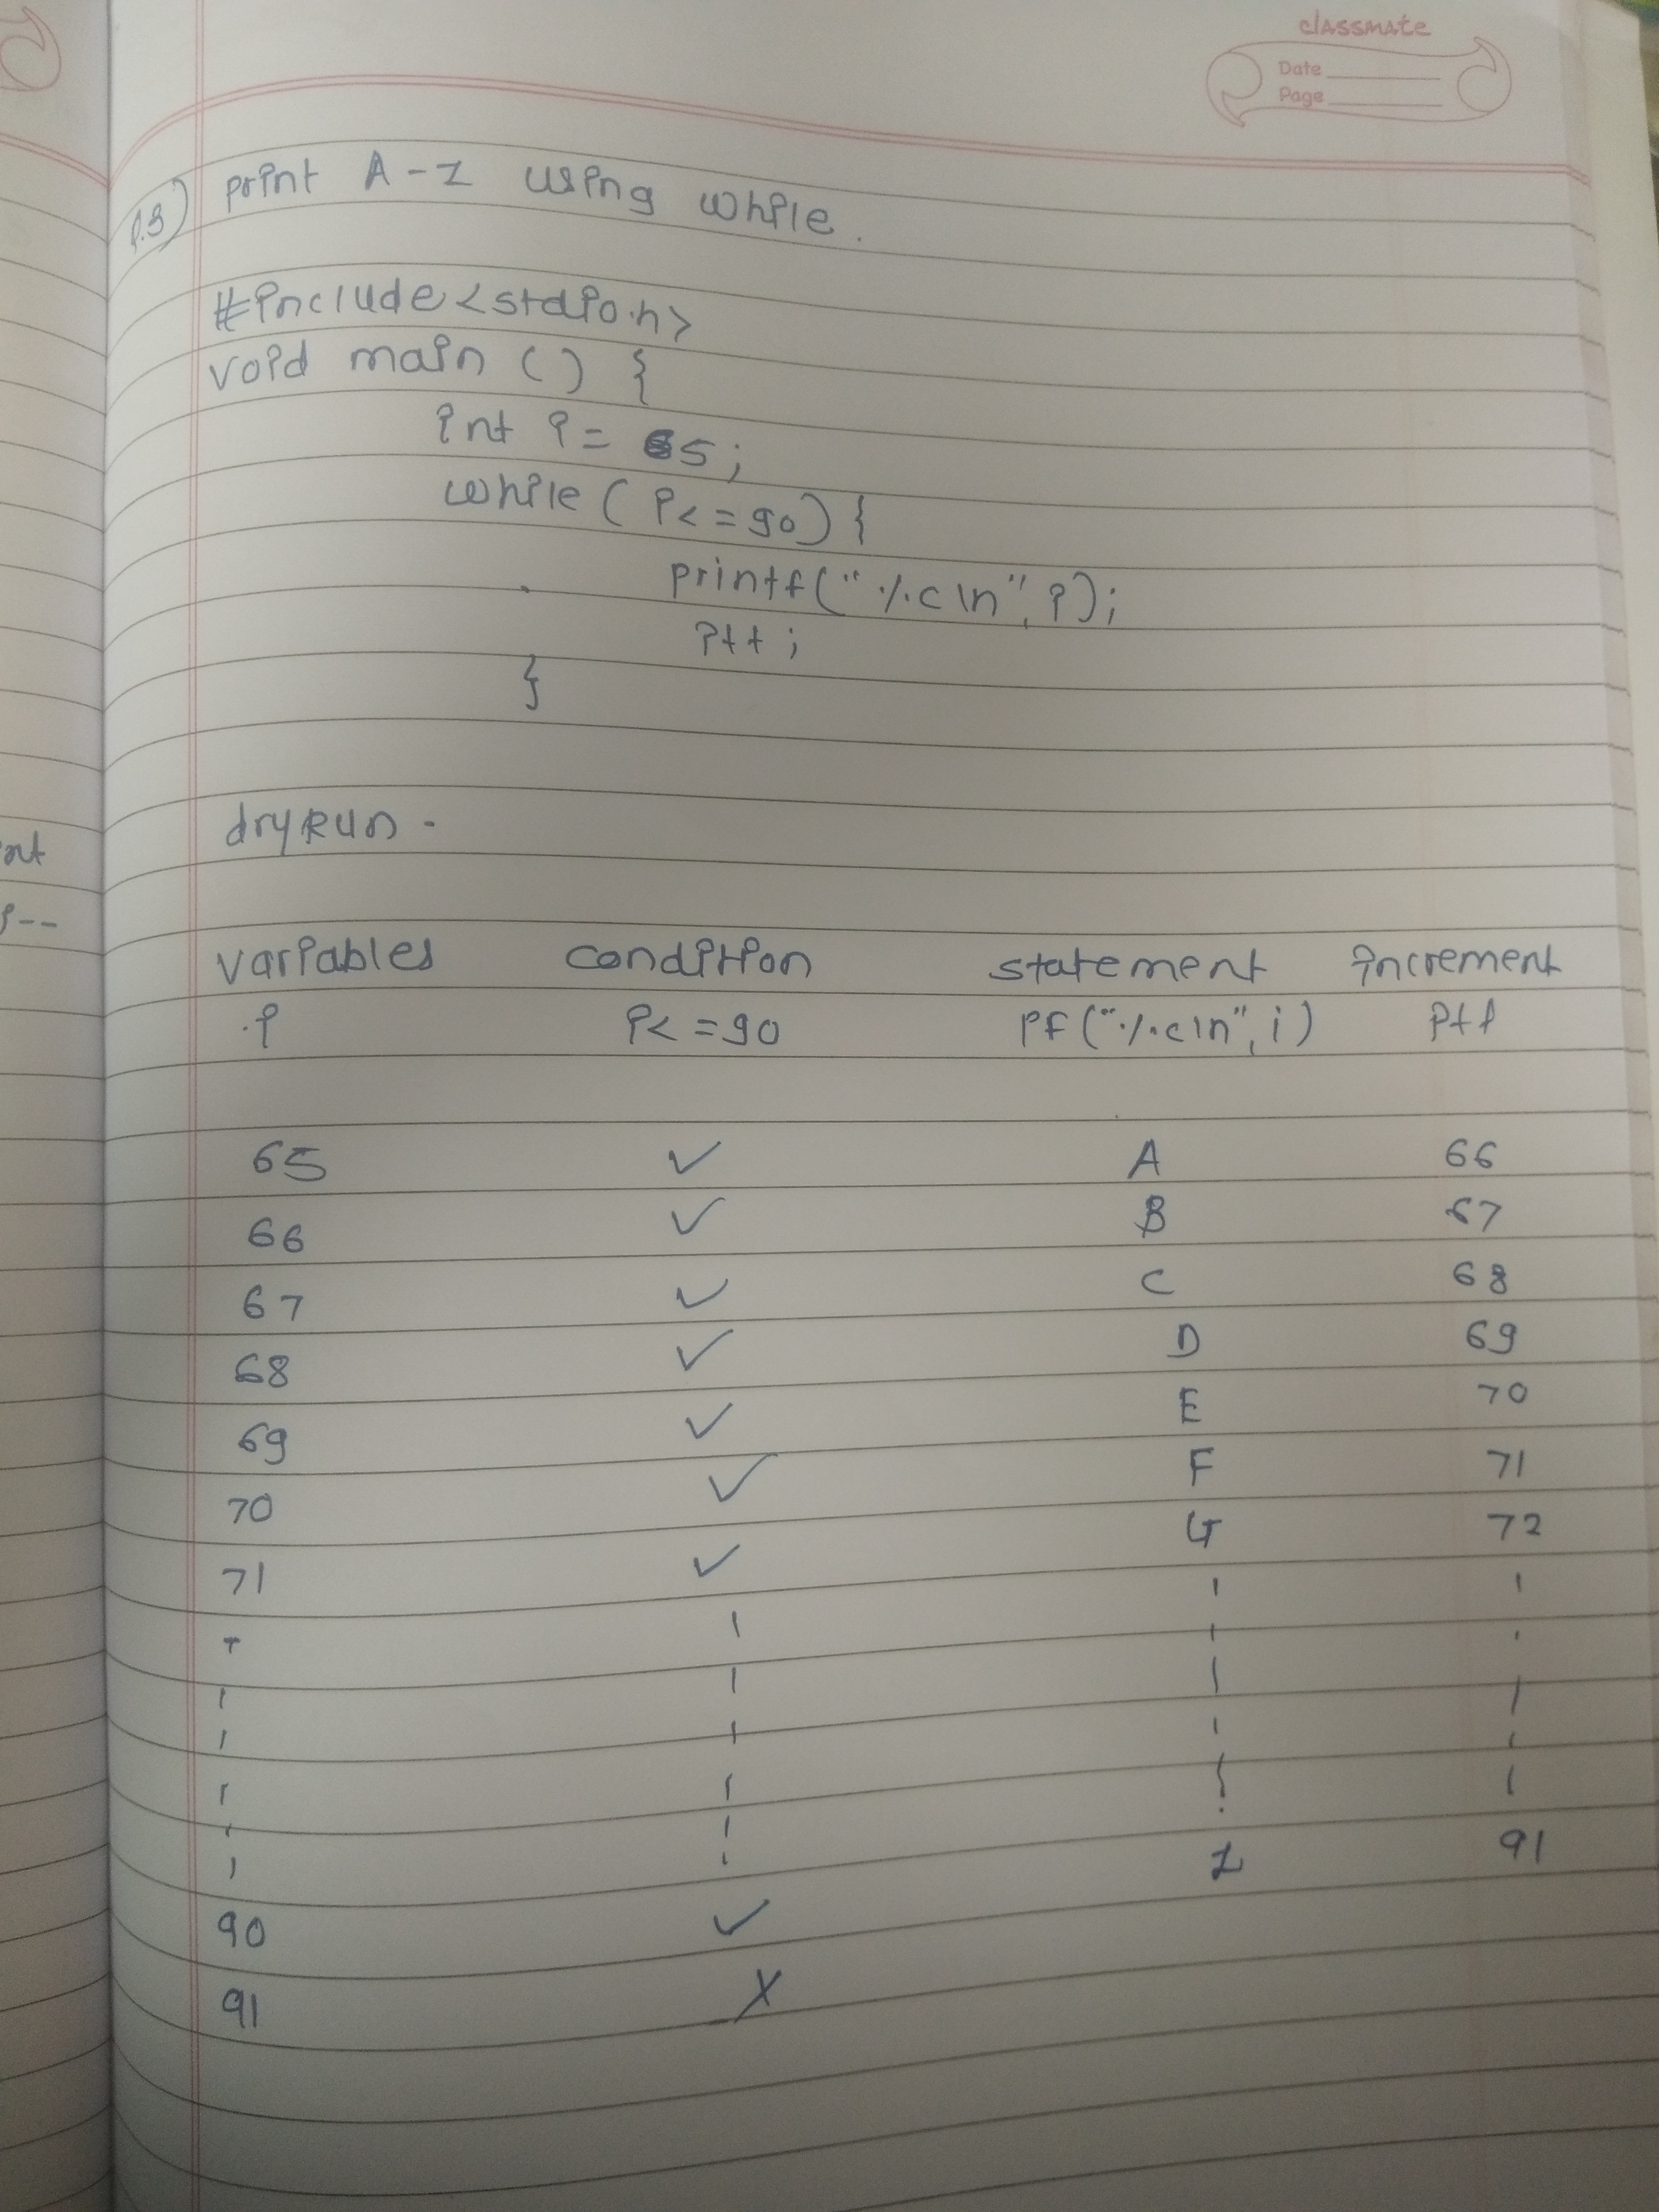 classmate
Date
Page
P.3) print A-Z using while.
#include<stdio.h>
void main () {
int i = 65;
while (i<=90) {
printf("%c\n", i);
i++;
}
dry Run.
variables condition statement increment
i i<=90 PF("%c\n", i) i++
65 ✓ A 66
66 ✓ B 67
67 ✓ C 68
68 ✓ D 69
69 ✓ E 70
70 ✓ F 71
71 ✓ G 72
Z 91
90 ✓
91 X
nt
i--